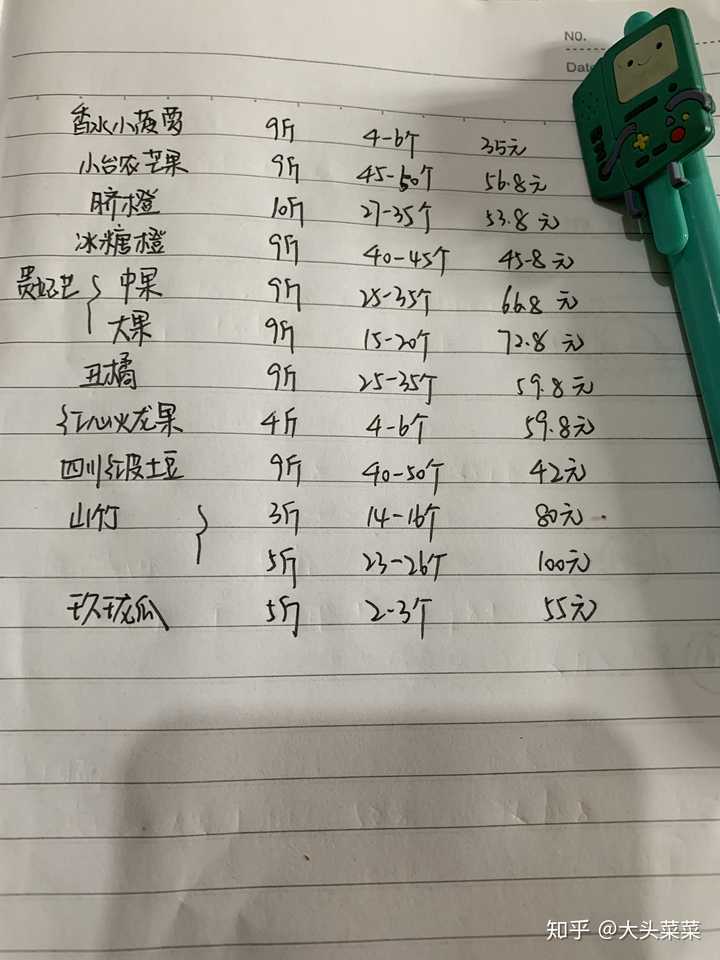 No.
Date
香水小菠萝 9斤 4-6个 35元
小台农芒果 9斤 45-50个 56.8元
脐橙 10斤 27-35个 53.8元
冰糖橙 9斤 40-45个 45.8元
贵妃芒 { 中果 9斤 25-35个 66.8元
大果 9斤 15-20个 72.8元
丑橘 9斤 25-35个 59.8元
红心火龙果 4斤 4-6个 59.8元
四川红皮土豆 9斤 40-50个 42元
山竹 } 3斤 14-16个 80元
5斤 23-26个 100元
玖珑瓜 5斤 2-3个 55元
知乎 @大头菜菜